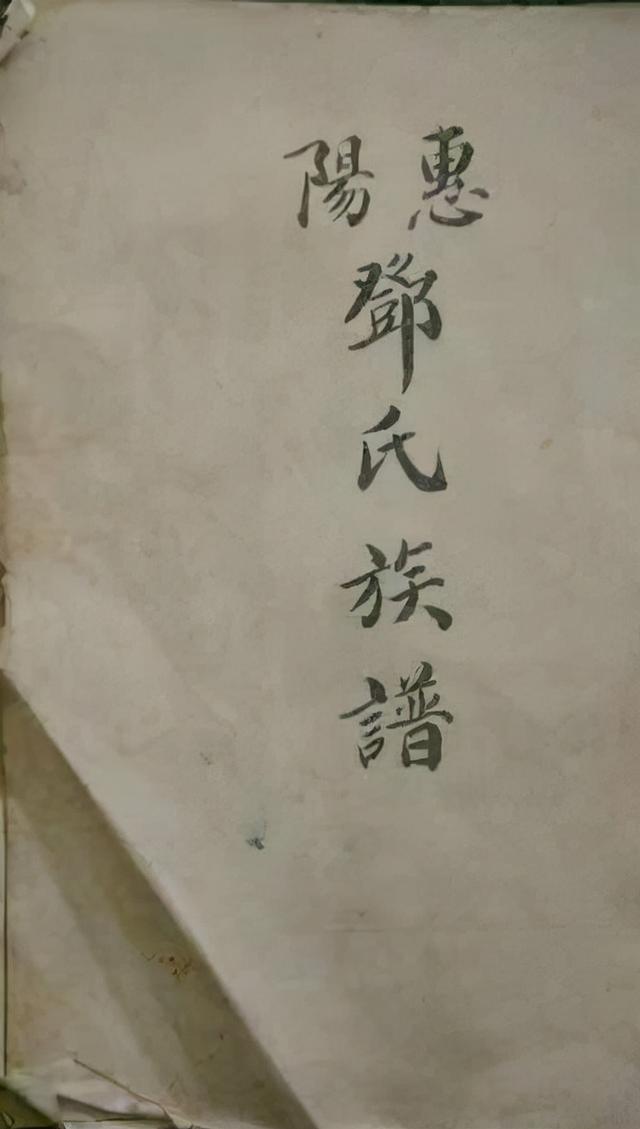 惠陽
鄧氏族譜